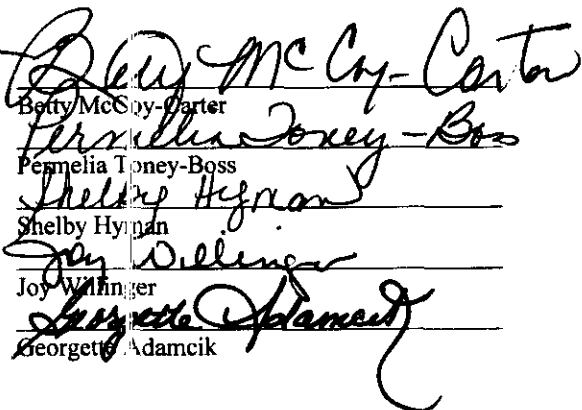 Betty McCoy-Carter
Betty McCoy-Carter
Permelia Toney-Boss
Permelia Toney-Boss
Shelby Hyman
Shelby Hyman
Joy Willinger
Joy Willinger
Georgette Adamcik
Georgette Adamcik